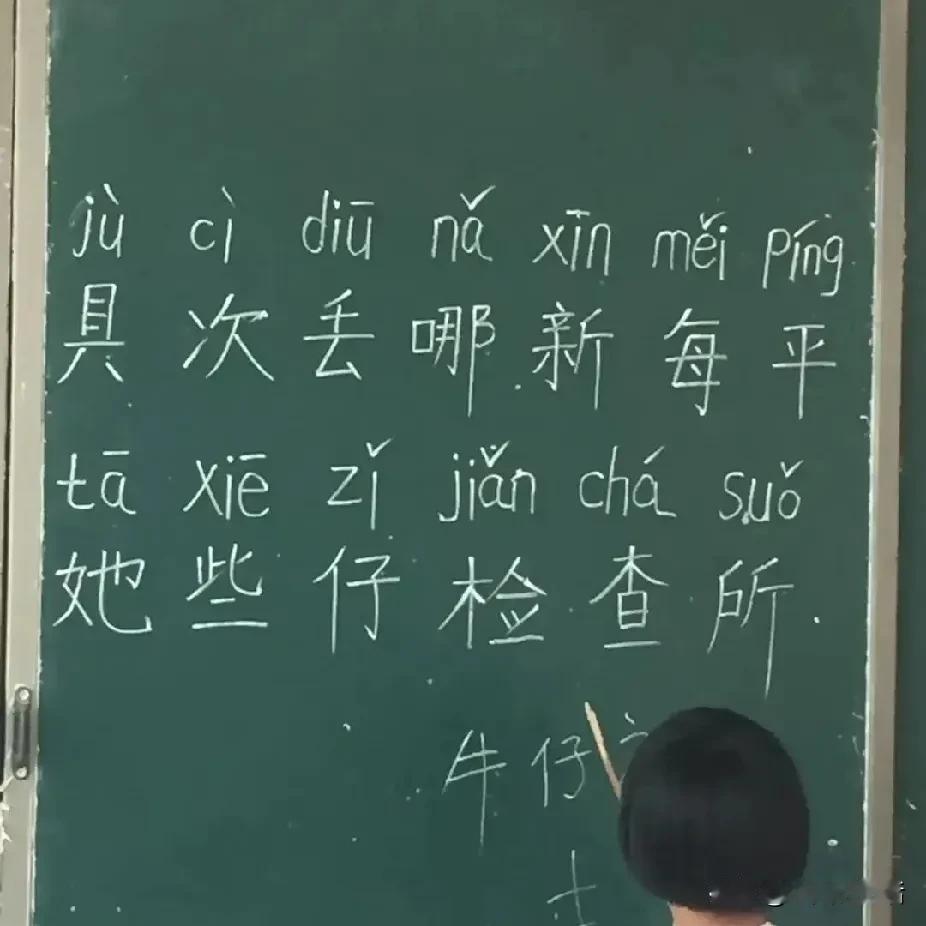 jù cì diū nǎ xīn měi píng
具 次 丢 哪 新 每 平
tā xiē zǐ jiǎn chá suǒ
她 些 仔 检 查 所
牛 仔